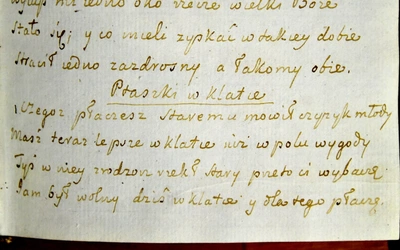 mi iedno oko rzecze wielki Boże
Stało się; y co mieli zyskać w takiey dobie
Stracił iedno zazdrosny a łakomy obie.
Ptaszki w klatce
Czegoż płaczesz staremu mówił czyżyk młody
Masz teraz lepsze w klatce niż w polu wygody
Tyś w niey zrodzon rzekł stary przeto ci wybaczę
Jam był wolny dziś w klatce y dla tego płaczę.